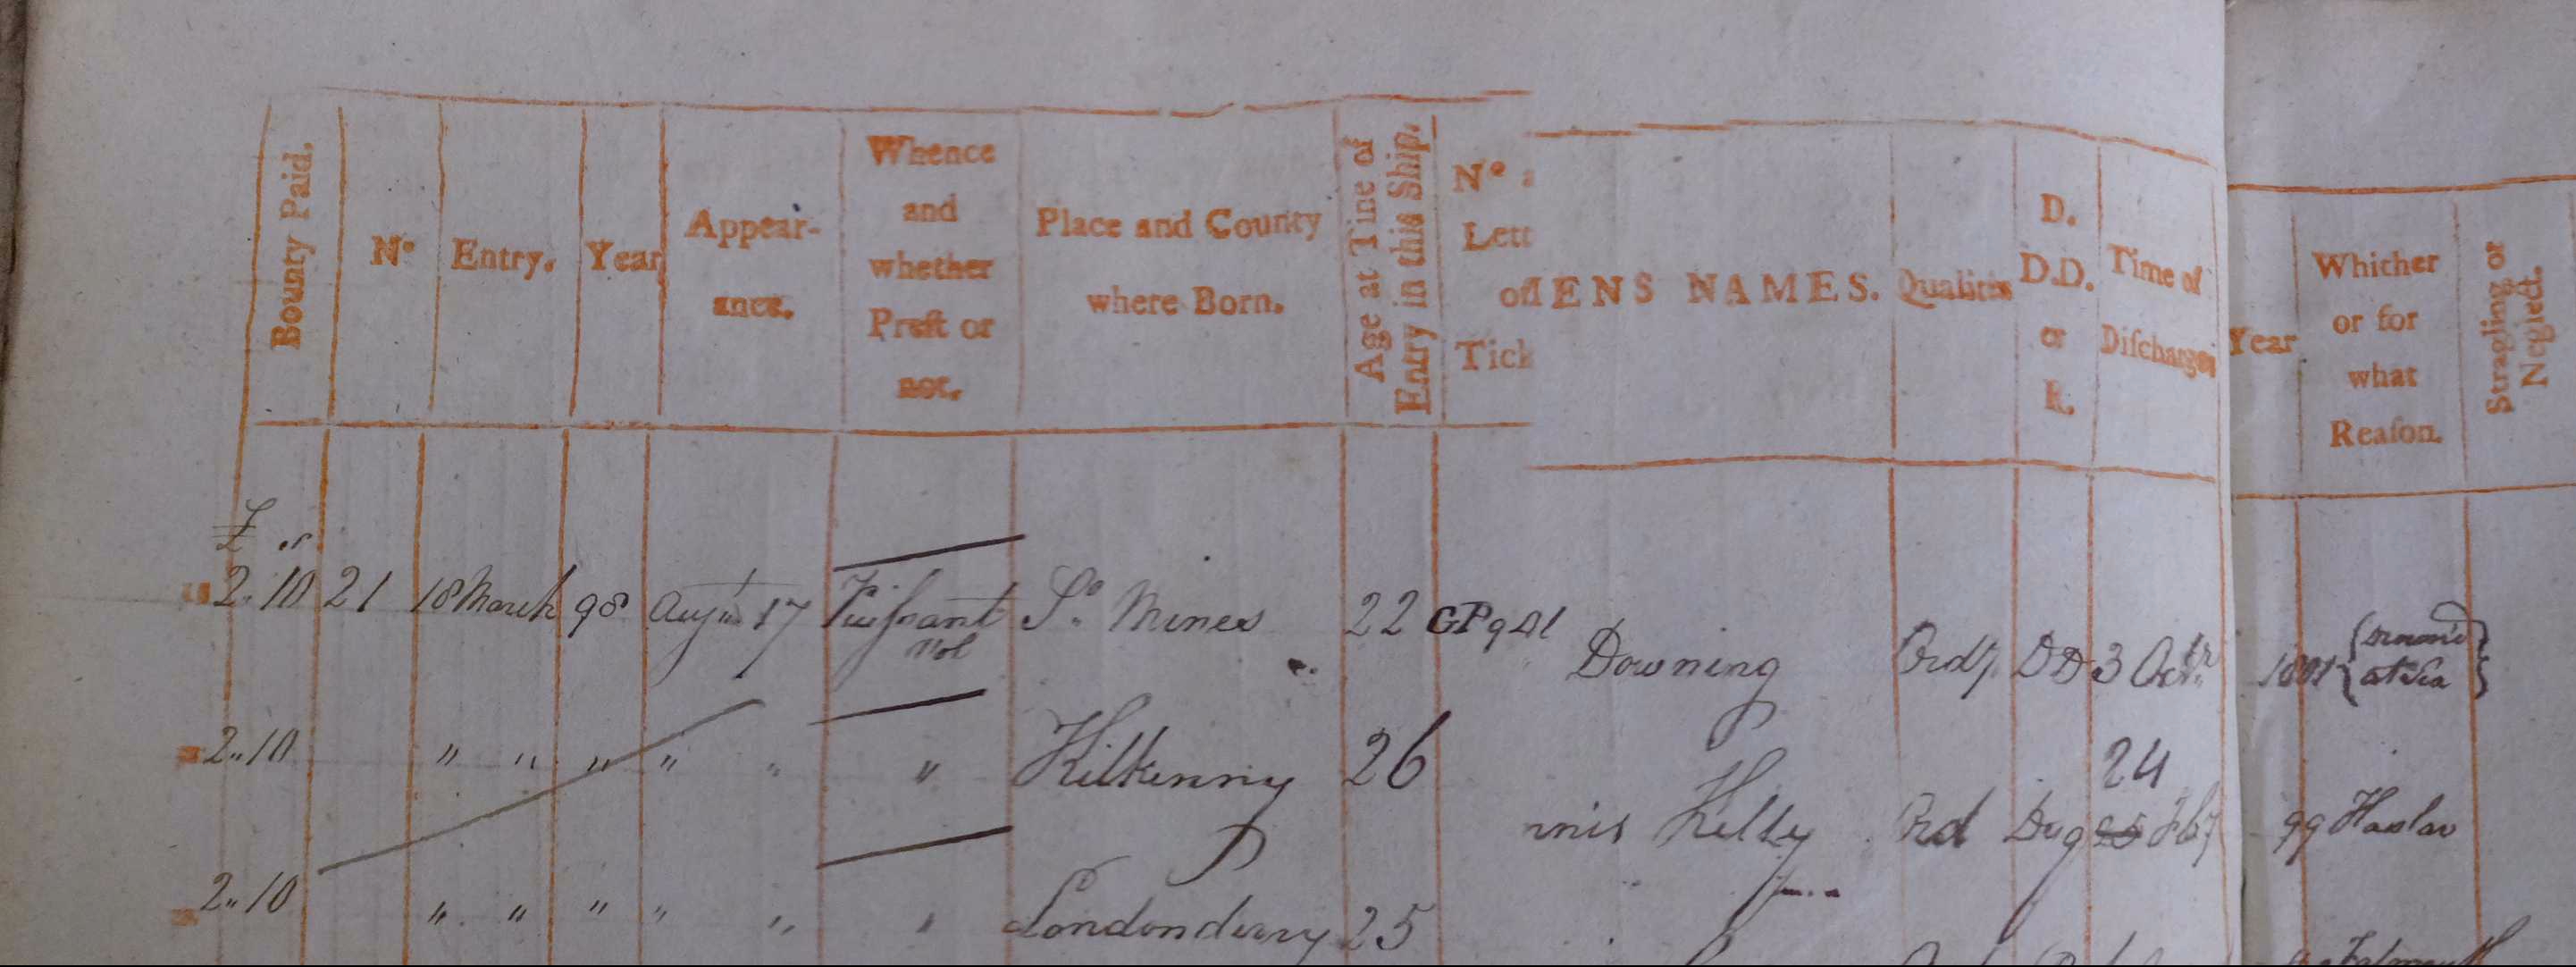 Bounty Paid.
No
Entry.
Year
Appear-
ance.
Whence
and
whether
Prest or
not.
Place and County
where Born.
Age at Time of
Entry in this Ship.
No
Lett
of
Tick
ENS NAMES.
Qualities
D.
D.D.
or
R.
Time of
Discharge
Year
Whither
or for
what
Reason.
Stragling or
Neglect.
£ s
2..10 21 18 March 98 17 Puissant So. Mines 22 GP Downing Ord DD 3 Octr 1801 at Sea
Vol
2..10 " " " " " " Kilkenny 26 nnis Kelly Ord 24 Feby 99 Haslar
2..10 " " " " " " Londonderry 25
Falmouth